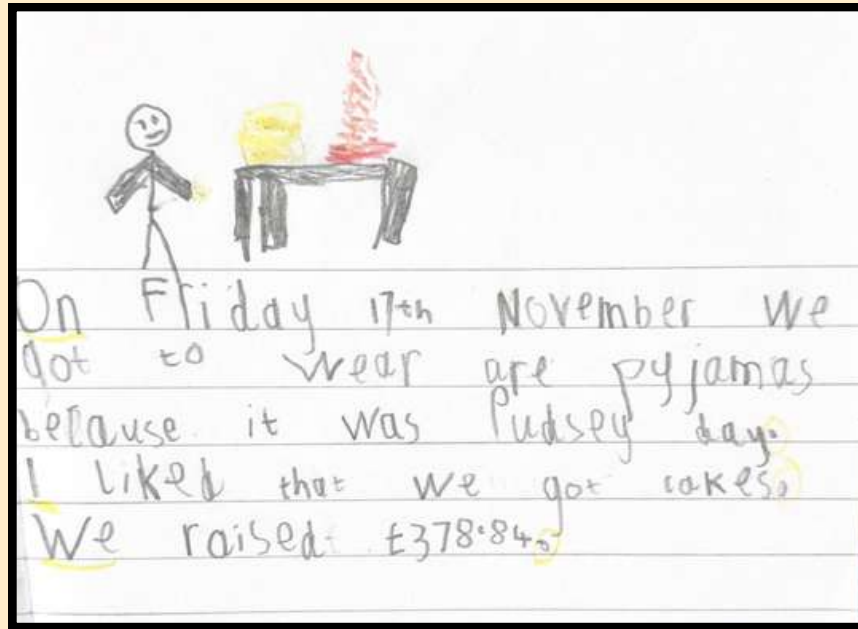 On Friday 17th November We
got to wear are pyjamas
because it was Pudsey day.
I liked that we got cakes.
We raised £378.84.